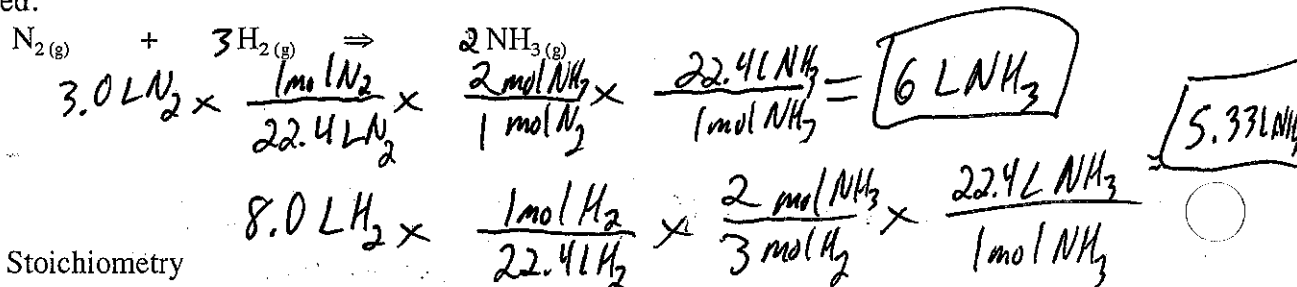 ed.
N₂(g) + 3 H₂(g) ⇒ 2 NH₃(g)
3.0 L N₂ × 1 mol N₂ / 22.4 L N₂ × 2 mol NH₃ / 1 mol N₂ × 22.4 L NH₃ / 1 mol NH₃ = 6 L NH₃
8.0 L H₂ × 1 mol H₂ / 22.4 L H₂ × 2 mol NH₃ / 3 mol H₂ × 22.4 L NH₃ / 1 mol NH₃ = 5.33 L NH₃
Stoichiometry